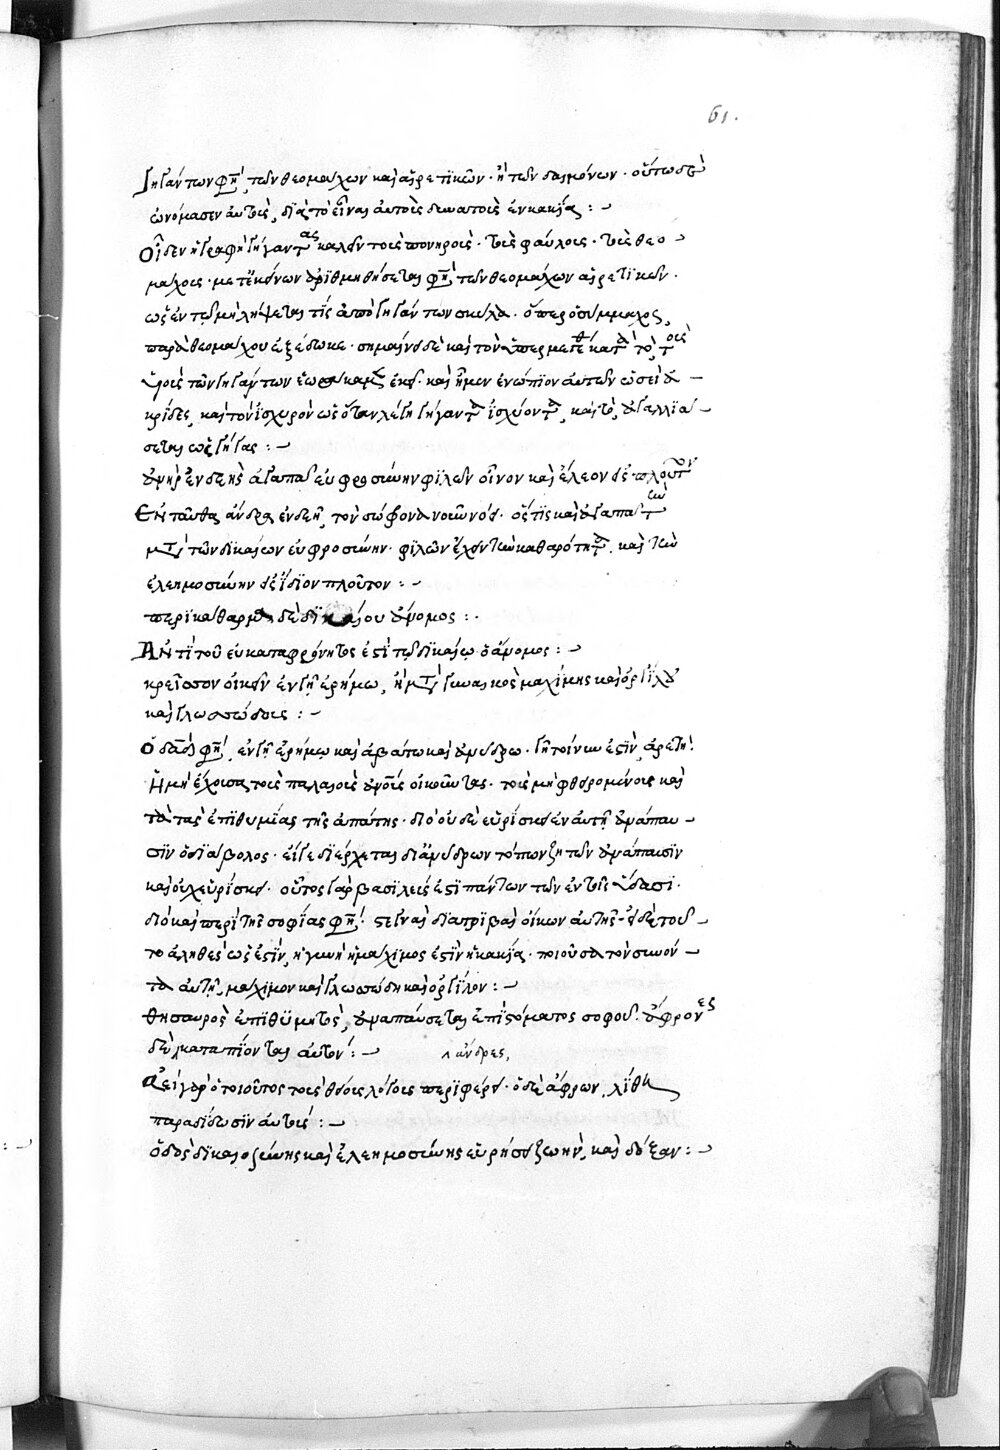 61.
Γιγάντων φη(σὶ), τῶν θεομάχων καὶ αἱρετικῶν· ἢ τῶν δαιμόνων· οὕτως δὲ
ὠνόμασεν αὐτοὺς, διὰ τὸ εἶναι αὐτοὺς δυνατοὺς ἐν κακίᾳ:
Οἶδεν ἡ γραφὴ γίγαντας καλεῖν τοὺς πονηροὺς· τοὺς φαύλους· τοὺς θεο
μάχους· μετ' ἐκείνων ἀριθμηθήσεται φη(σὶ) τῶν θεομάχων αἱρετικῶν·
παρὰ θεομάχου ἐξέδωκε· σημαίνει δὲ καὶ τὸν
κρίδες, καὶ τὸν ἰσχυρὸν ὡς ὅταν λέγῃ γίγαντα ἰσχύοντα, καὶ τὸ, ἀγαλλιά
σεται ὡς γίγας:
ἀνὴρ ἐνδεὴς ἀγαπᾷ εὐφροσύνην φιλῶν οἶνον καὶ ἔλεον εἰς πλοῦτον
Ἐνταῦθα ἄνδρα ἐνδεῆ, τὸν σώφρονα νοεῖν· ὅστις καὶ ἀγαπᾷ τὴν
μετὰ τῶν δικαίων εὐφροσύνην· φιλῶν ἔχειν τὴν καθαρότητα, καὶ τὴν
ἐλεημοσύνην εἰς ἴδιον πλοῦτον:
περικάθαρμα δὲ δικαίου ἄνομος:
Ἀντὶ τοῦ εὐκαταφρόνητος ἐστὶ τῷ δικαίῳ ὁ ἄνομος:
κρεῖσσον οἰκεῖν ἐν γῇ ἐρήμῳ, ἢ μετὰ γυναικὸς μαχίμης καὶ ὀργίλου
καὶ γλωσσώδους:
Ὁ δαδ φη(σὶ), ἐν γῇ ἐρήμῳ καὶ ἀβάτῳ καὶ ἀνύδρῳ· γῆ τοίνυν ἐστὶν, ἀρετὴ·
Ἡ μὴ ἔχουσα τοὺς παλαιοὺς ἀνους οἰκοῦντας· τοὺς μὴ φθειρομένους κατὰ
τὰς ἐπιθυμίας τῆς ἀπάτης· διὸ οὐδὲ εὑρίσκει ἐν αὐτῇ ἀνάπαυ
σιν ὁ διάβολος· εἴγε διέρχεται δι' ἀνύδρων τόπων ζητῶν ἀνάπαυσιν
καὶ οὐχ εὑρίσκει· οὗτος γὰρ βασιλεύς ἐστι πάντων τῶν ἐν τοῖς ὕδασι·
διὸ καὶ περὶ τῆς σοφίας φη(σὶ)
τὸ ἀληθὲς ὡς ἐστὶν, ἡ γυνὴ ἡ μάχιμος ἐστὶν ἡ κακία· ποιοῦσα τὸν συνόν
τα αὐτῇ, μάχιμον καὶ γλωσσώδη καὶ ὀργίλον:
θησαυρὸς ἐπιθυμητὸς, ἀναπαύσεται ἐπὶ στόματος σοφοῦ· ἄφρονες
δὲ καταπίονται αὐτόν: ἄνδρες,
Ἀεὶ γὰρ ὁ τοιοῦτος τοὺς θείους λόγους περιφέρει· ὁ δὲ ἄφρων, λήθῃ
παραδίδωσιν αὐτοὺς:
ὁδὸς δικαιοσύνης καὶ ἐλεημοσύνης εὑρήσει ζωὴν, καὶ δόξαν: